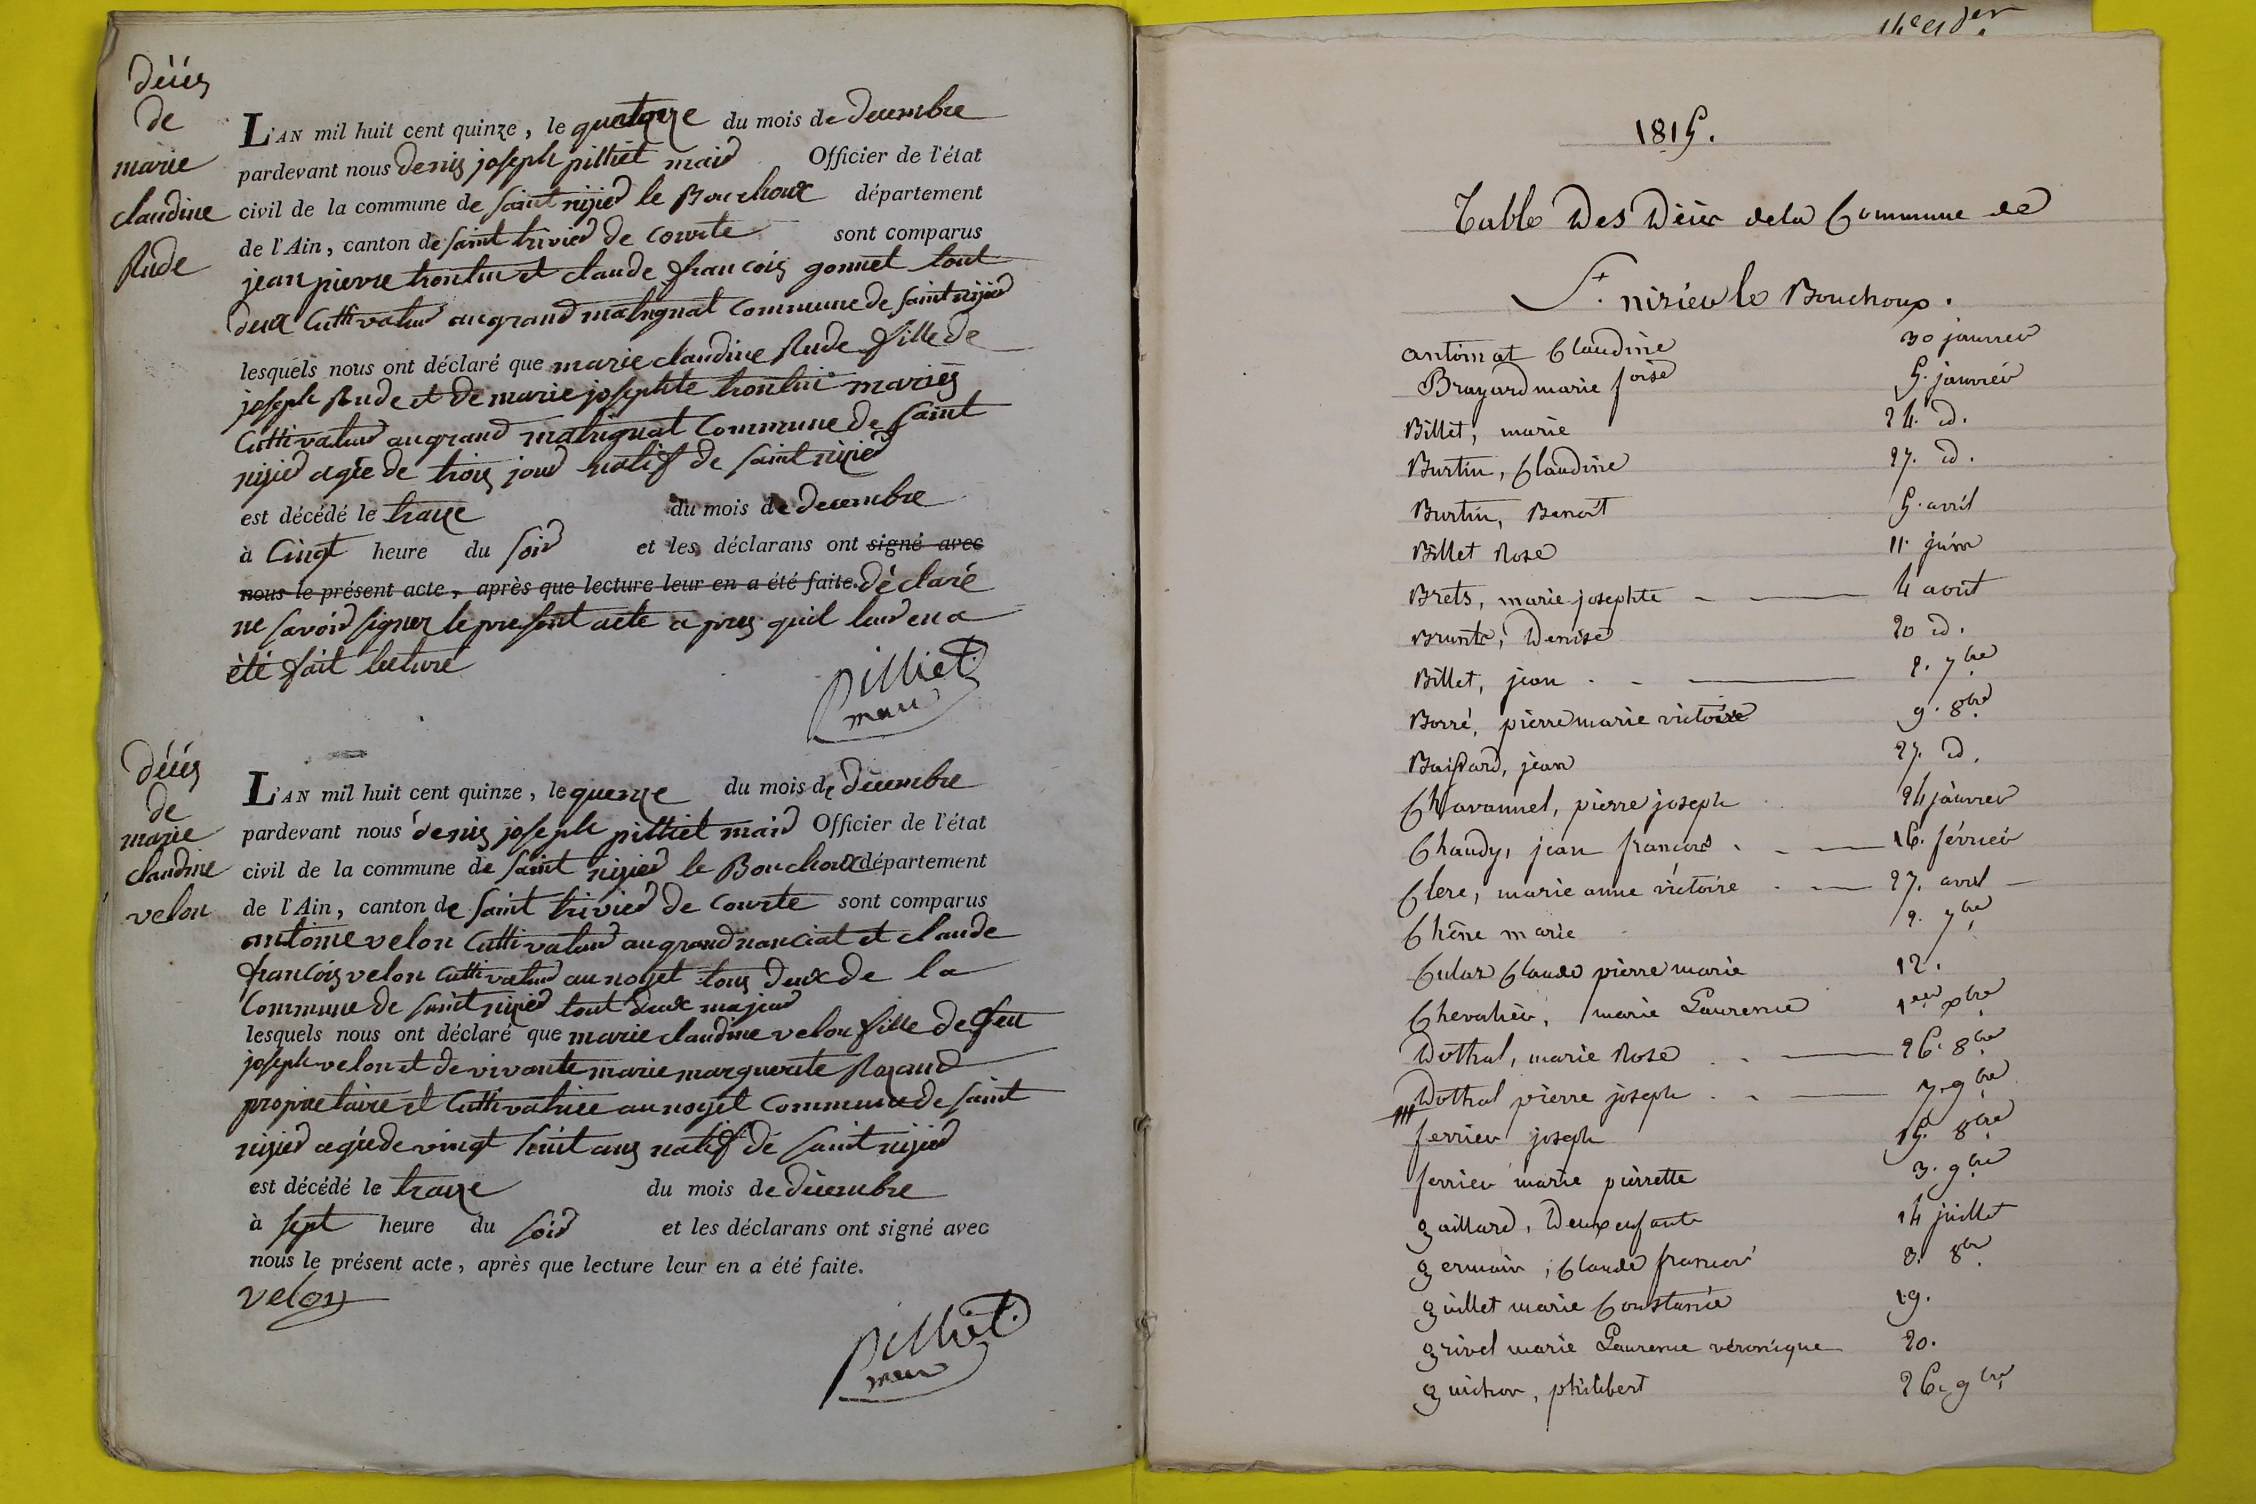 décés
de
marie
claudine
Rude
L'AN mil huit cent quinze, le quatorze du mois de decembre
pardevant nous denis joseph pilliet maire Officier de l'état
civil de la commune de saint nizier le Bouchoux département
de l'Ain, canton de saint trivier de courte sont comparus
jean pierre trontin et claude françois gonnet tout
deux Cultivateur au grand matignat commune de saint nizier
lesquels nous ont déclaré que marie claudine Rude fille de
joseph Rude et de marie josephte trontin mariés
Cultivateur au grand matignat commune de saint
nizier agée de trois jour natif de saint nizier
est décédé le traize du mois de decembre
à Cinqt heure du soir et les déclarans ont signé avec
nous le présent acte, après que lecture leur en a été faite. déclaré
ne savoir signer le present acte apres quil leur en a
été fait lecture
Pilliet
maire
décés
de
marie
claudine
velon
L'AN mil huit cent quinze, le quenze du mois de décembre
pardevant nous denis joseph pilliet maire Officier de l'état
civil de la commune de saint nizier le Bouchoux département
de l'Ain, canton de saint trivier de courte sont comparus
antoine velon Cultivateur au grand nanciat et claude
françois velon cultivateur au noyet tous deux de la
Commune de saint nizier tout deux majeur
lesquels nous ont déclaré que marie claudine velon fille de feu
joseph velon et de vivante marie marguerite Razand
proprietaire et Cultivatrice au noyet commune de saint
nizier agée de vingt huit ans natif de saint nizier
est décédé le traize du mois de décembre
à sept heure du soir et les déclarans ont signé avec
nous le présent acte, après que lecture leur en a été faite.
velon
Pilliet
maire
1815.
Table Des Décès de la Commune de
St. nizier le Bouchoux.
antoinat Claudine 30 janvier
Brayard marie foise 5. janvier
Billet, marie 24. id.
Burtin, Claudine 27. id.
Burtin, Benoit 5. avril
Billet Rose 11. juin
Brets, marie josephte 4 aout
Brunte, Denise 20 id.
Billet, jean 2. 7bre
Borré, pierre marie victoire 9. 8bre
Baissard, jean 27. id.
Chavannel, pierre joseph 24 janvier
Chaudy, jean francois 16. février
Clerc, marie anne victoire 27. avril
Chêne marie 2. 7bre
Culas Claude pierre marie 12.
Chevalier, marie Laurence 1er xbre
Dothal, marie Rose 26. 8bre
Dothal pierre joseph 7. 9bre
ferrier joseph 15. 8bre
ferrier marie pierrette 3. 9bre
gaillard, Deux enfants 14 juillet
germain, Claude francois 8. 8bre
guillet marie Constance 19.
grivel marie Laurence véronique 20.
guichon, philibert 26. 9bre